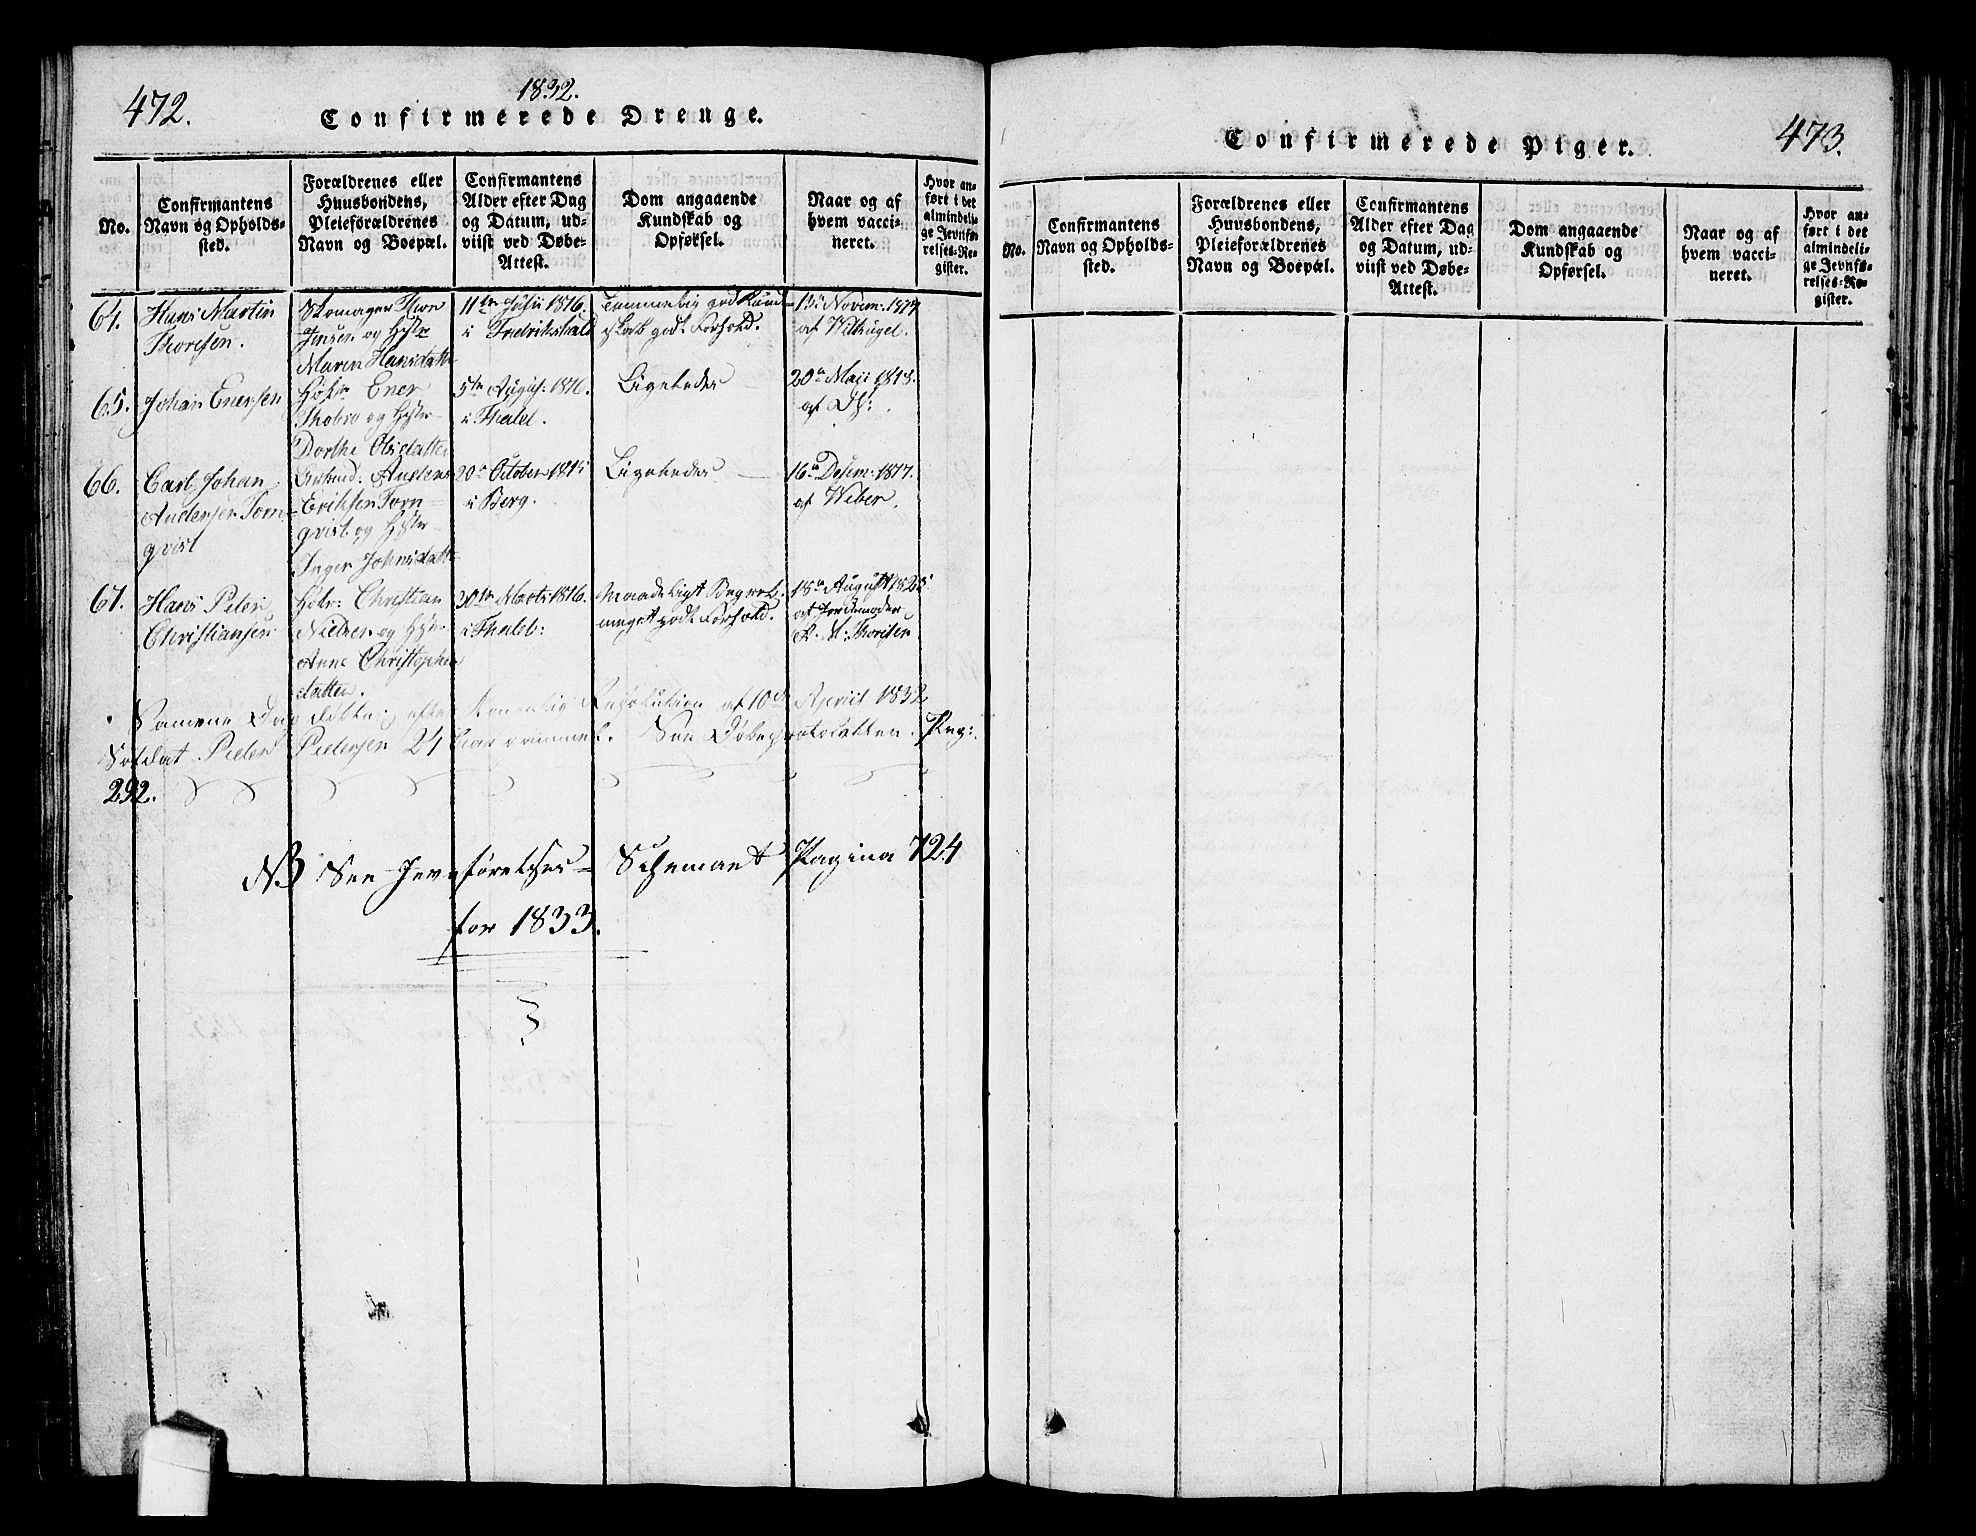 472.
1832.
Confirmerede Drenge.
No.
Confirmantens
Navn og Opholds-
sted.
Forældrenes eller
Huusbondens,
Pleieforældrenes
Navn og Boepæl.
Confirmantens
Alder efter Dag
og Datum, ud-
viist ved Døbe-
Attest.
Dom angaaende
Kundskab og
Opførsel.
Naar og af
hvem vacci-
neret.
Hvor an-
ført i det
almindeli-
ge Jevnfø-
relses-Re-
gister.
64.
Hans Martin
Thoresen.
Skomager Thor
Jensen og Hstr
Maren Hansdatter
11te Julii 1816.
i Fredrikshald
Temmelig god Kund-
skab godt Forhold.
13de Novem: 1817
af
65.
Johan Enersen
Ener
Thobro og Hstr
Dorthe Olsdatter
5te August. 1816.
i
Ligeledes
20de Maii 1818.
af D:
66.
Carl Johan
Andersen Torn-
qvist
Anders
Eriksen Torn-
qvist og Hstr
Inger Johnsdatter
20de October 1815
i Berg.
Ligeledes
16de Desem: 1817.
af Weber.
67.
Hans Peter
Christiansen
Christian
Nielsen og Hstr
Anne Christopher
datter.
30te Marts 1816.
i
Maadeligt Begreb
meget godt Forhold.
18de August 1828
af Jordemoder
Thoresen
Samme Dag efter Resolution af 10de April 1832
Soldat Peder Pedersen 24 Aar gammel. See Døbeprotocollen. Pag:
292.
NB See Jevnførelses- Schemaet Pagina 724
for 1833.
Confirmerede Piger.
473.
No.
Confirmantens
Navn og Opholds-
sted.
Forældrenes eller
Huusbondens,
Pleieforældrenes
Navn og Boepæl.
Confirmantens
Alder efter Dag
og Datum, ud-
viist ved Døbe-
Attest.
Dom angaaende
Kundskab og
Opførsel.
Naar og af
hvem vacci-
neret.
Hvor an-
ført i det
almindeli-
ge Jevnfø-
relses-Re-
gister.